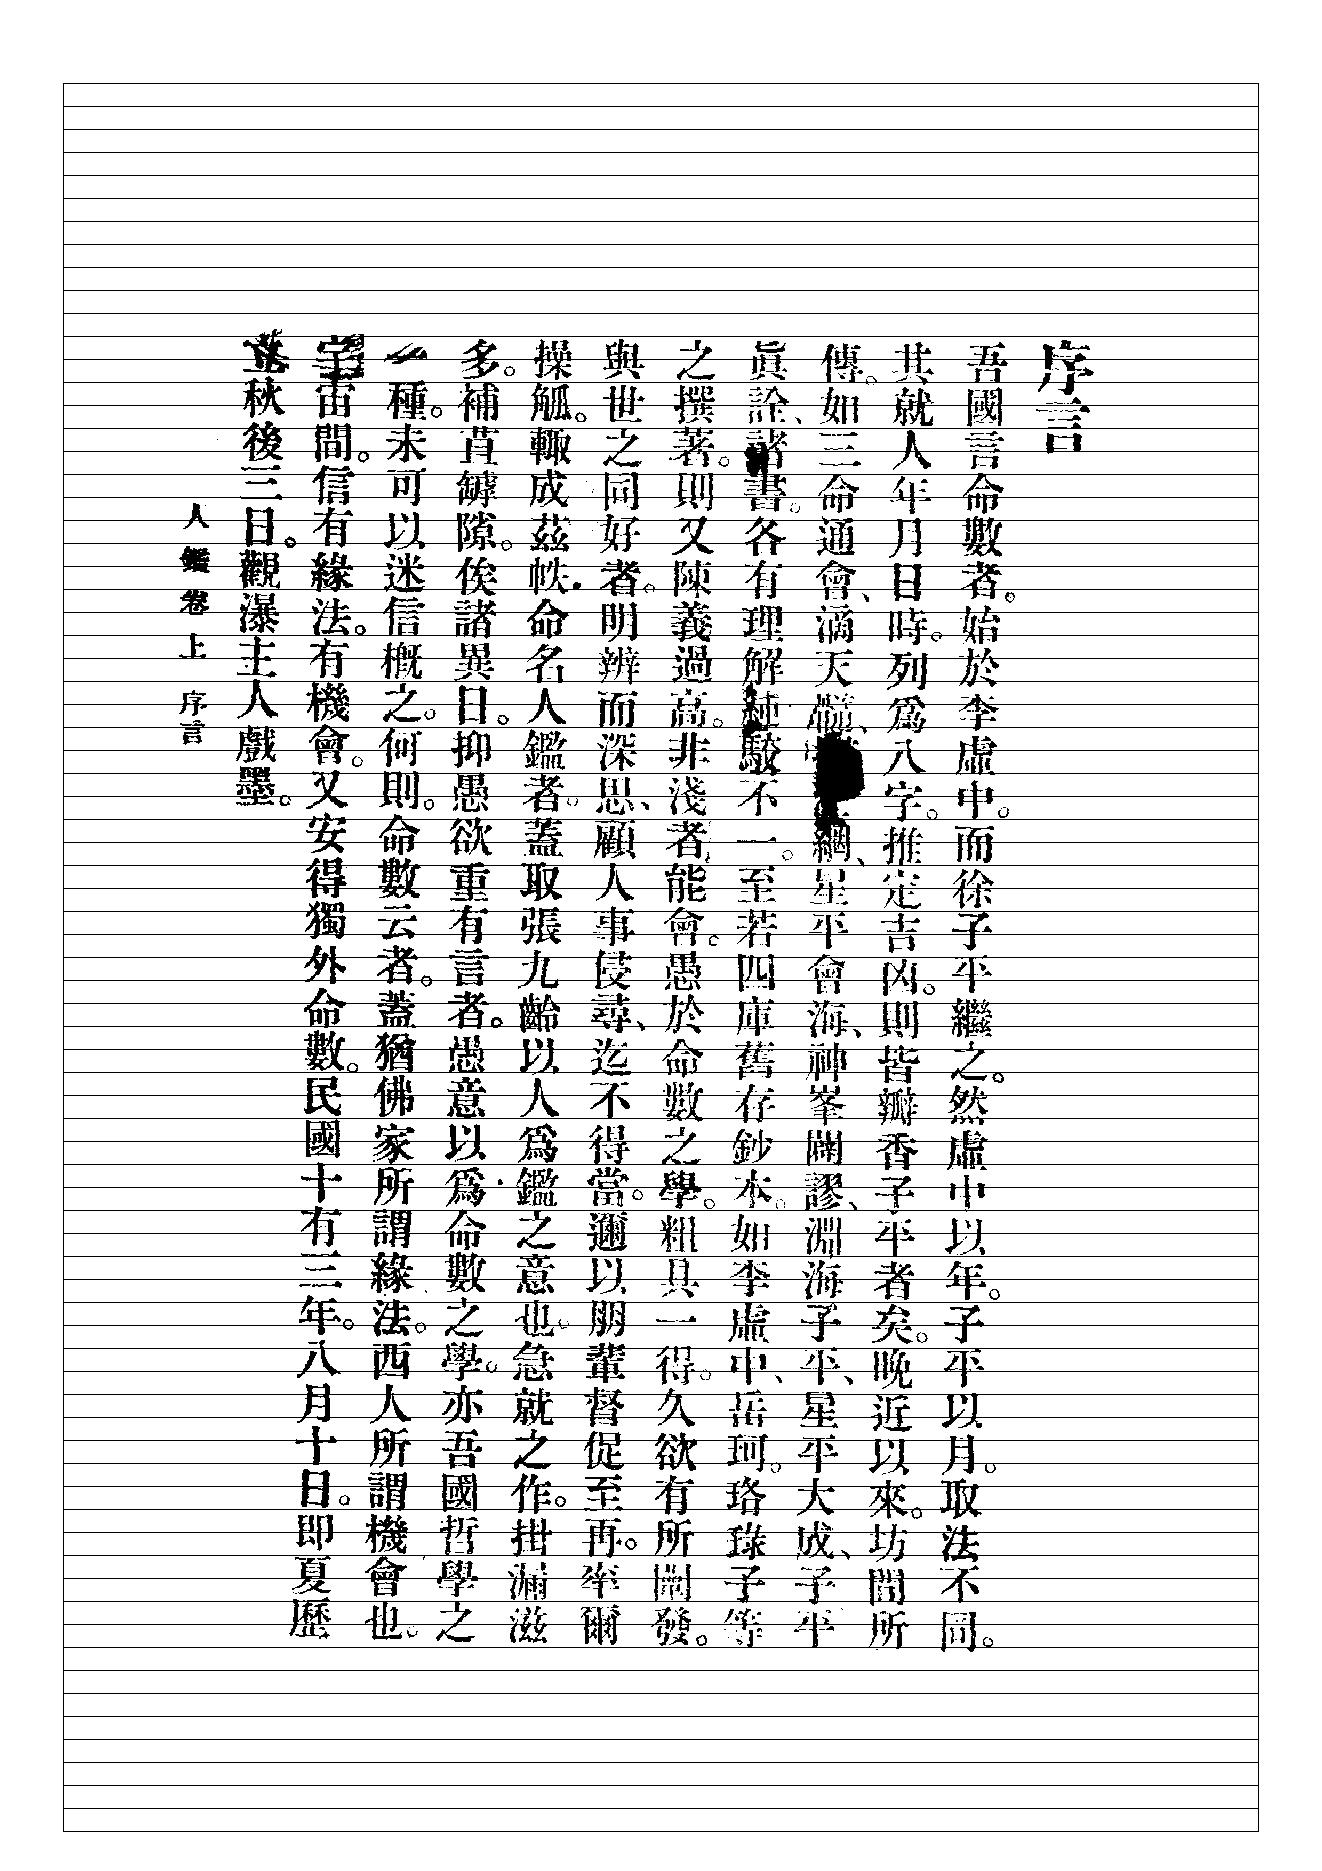 序言
吾國言命數者。始於李虛中。而徐子平繼之。然虛中以年。子平以月。取法不同。
其就人年月日時。列爲八字。推定吉凶。則皆瓣香子平者矣。晚近以來。坊間所
傳。如三命通會、滴天髓、綱、星平會海、神峯闢謬、淵海子平、星平大成、子平
眞詮、諸書。各有理解純駁不一。至若四庫舊存鈔本。如李虛中、岳珂。珞琭子等
之撰著。則又陳義過高。非淺者能會。愚於命數之學。粗具一得。久欲有所闡發。
與世之同好者。明辨而深思、顧人事侵尋、迄不得當。邇以朋輩督促至再。率爾
操觚。輙成茲帙。命名人鑑者。蓋取張九齡以人爲鑑之意也。急就之作。掛漏滋
多。補苴罅隙。俟諸異日。抑愚欲重有言者。愚意以爲命數之學。亦吾國哲學之
一種。未可以迷信槪之。何則。命數云者。蓋猶佛家所謂緣法。西人所謂機會也。
宇宙間。信有緣法。有機會。又安得獨外命數。民國十有三年。八月十日。即夏歷
立秋後三日。觀瀑主人戲墨。
人鑑卷上 序言